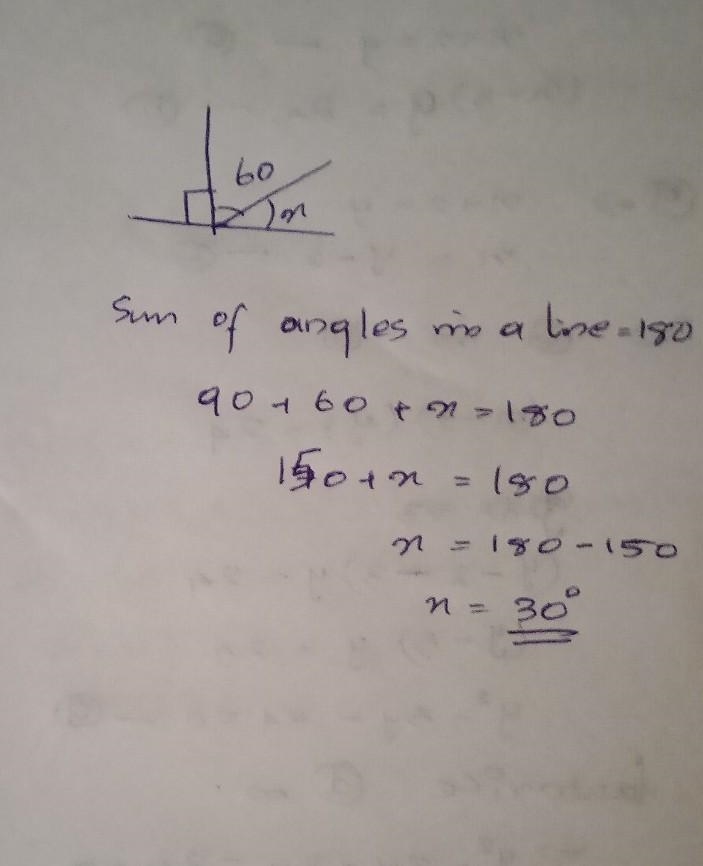 60
x
Sum of angles in a line = 180
90 + 60 + x = 180
150 + x = 180
x = 180 - 150
x = 30°